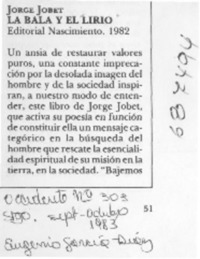 JORGE JOBET
LA BALA Y EL LIRIO
Editorial Nascimento. 1982
Un ansia de restaurar valores
puros, una constante impreca-
ción por la desolada imagen del
hombre y de la sociedad inspi-
ran, a nuestro modo de enten-
der, este libro de Jorge Jobet,
que activa su poesía en función
de constituir ella un mensaje ca-
tegórico en la búsqueda del
hombre que rescate la esenciali-
dad espiritual de su misión en la
tierra, en la sociedad. "Bajemos
51
Occidente Nº 303
Stgo. sept-octubre
1983
Eugenio García-Díaz
687494